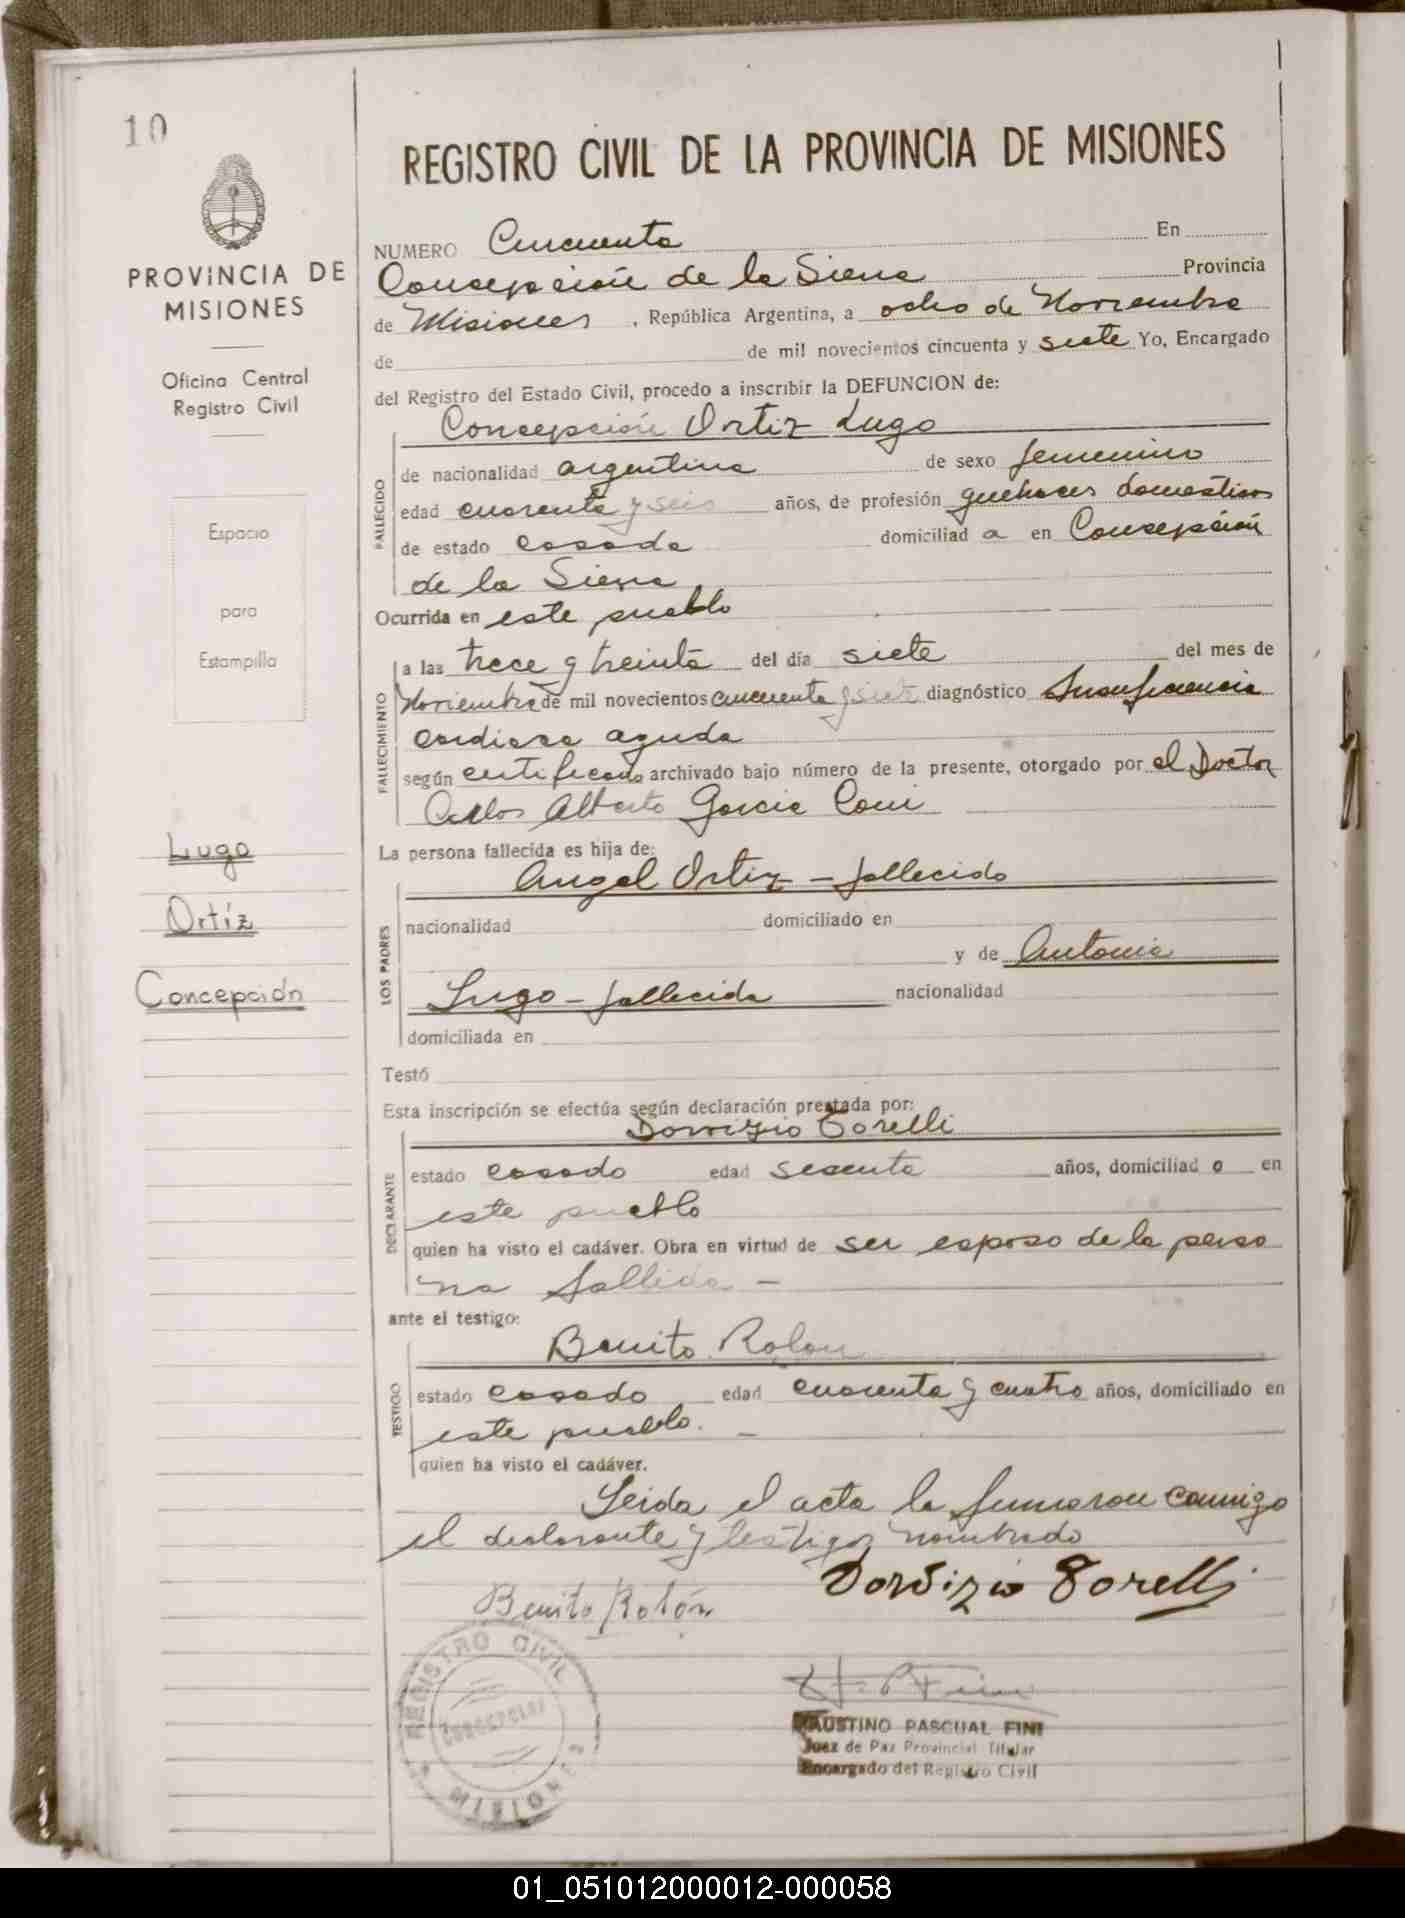 10
PROVINCIA DE
MISIONES
Oficina Central
Registro Civil
Espacio
para
Estampilla
Lugo
Ortíz
Concepción
REGISTRO CIVIL DE LA PROVINCIA DE MISIONES
NUMERO Cincuenta En
Concepción de la Sierra Provincia
de Misiones, República Argentina, a ocho de Noviembre
de de mil novecientos cincuenta y siete Yo, Encargado
del Registro del Estado Civil, procedo a inscribir la DEFUNCION de:
Concepción Ortiz Lugo
FALLECIDO
de nacionalidad argentina de sexo femenino
edad cuarenta y seis años, de profesión quehaceres domesticos
de estado casada domiciliad a en Concepción
de la Sierra
Ocurrida en este pueblo
FALLECIMIENTO
a las trece y treinta del día siete del mes de
Noviembre de mil novecientos cincuenta y siete diagnóstico Insuficiencia
cardiaca aguda
según certificado archivado bajo número de la presente, otorgado por el Doctor
Carlos Alberto Garcia Coni
La persona fallecida es hija de:
LOS PADRES
Angel Ortiz - fallecido
nacionalidad domiciliado en
y de Antonia
Lugo - fallecida nacionalidad
domiciliada en
Testó
Esta inscripción se efectúa según declaración prestada por:
DECLARANTE
Torelli
estado casado edad sesenta años, domiciliad o en
este pueblo
quien ha visto el cadáver. Obra en virtud de ser esposo de la perso
na fallida -
ante el testigo:
TESTIGO
Benito Rolon
estado casado edad cuarenta y cuatro años, domiciliado en
este pueblo. -
quien ha visto el cadáver.
Leida el acta la firmaron conmigo
el declarante y testigo nombrado
Benito Rolón
Dorsizio Torelli
REGISTRO CIVIL
CONCEPCION
MISIONES
FAUSTINO PASCUAL FINI
Juez de Paz Provincial Titular
Encargado del Registro Civil
01_051012000012-000058